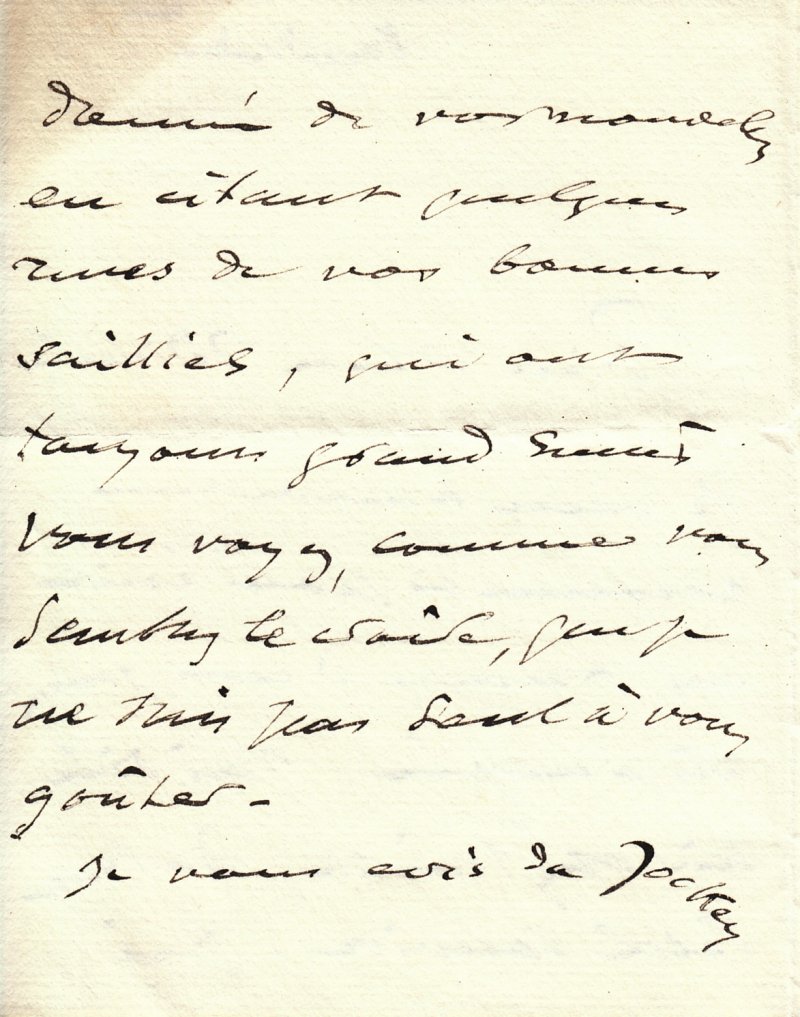 donné de vos nouvelles
en citant quelques
unes de vos bonnes
saillies, qui ont
toujours grand succès
vous voyez, comme vous
semblez le croire, que je
ne suis pas seul à vous
goûter -
Je vous écris du Jockey